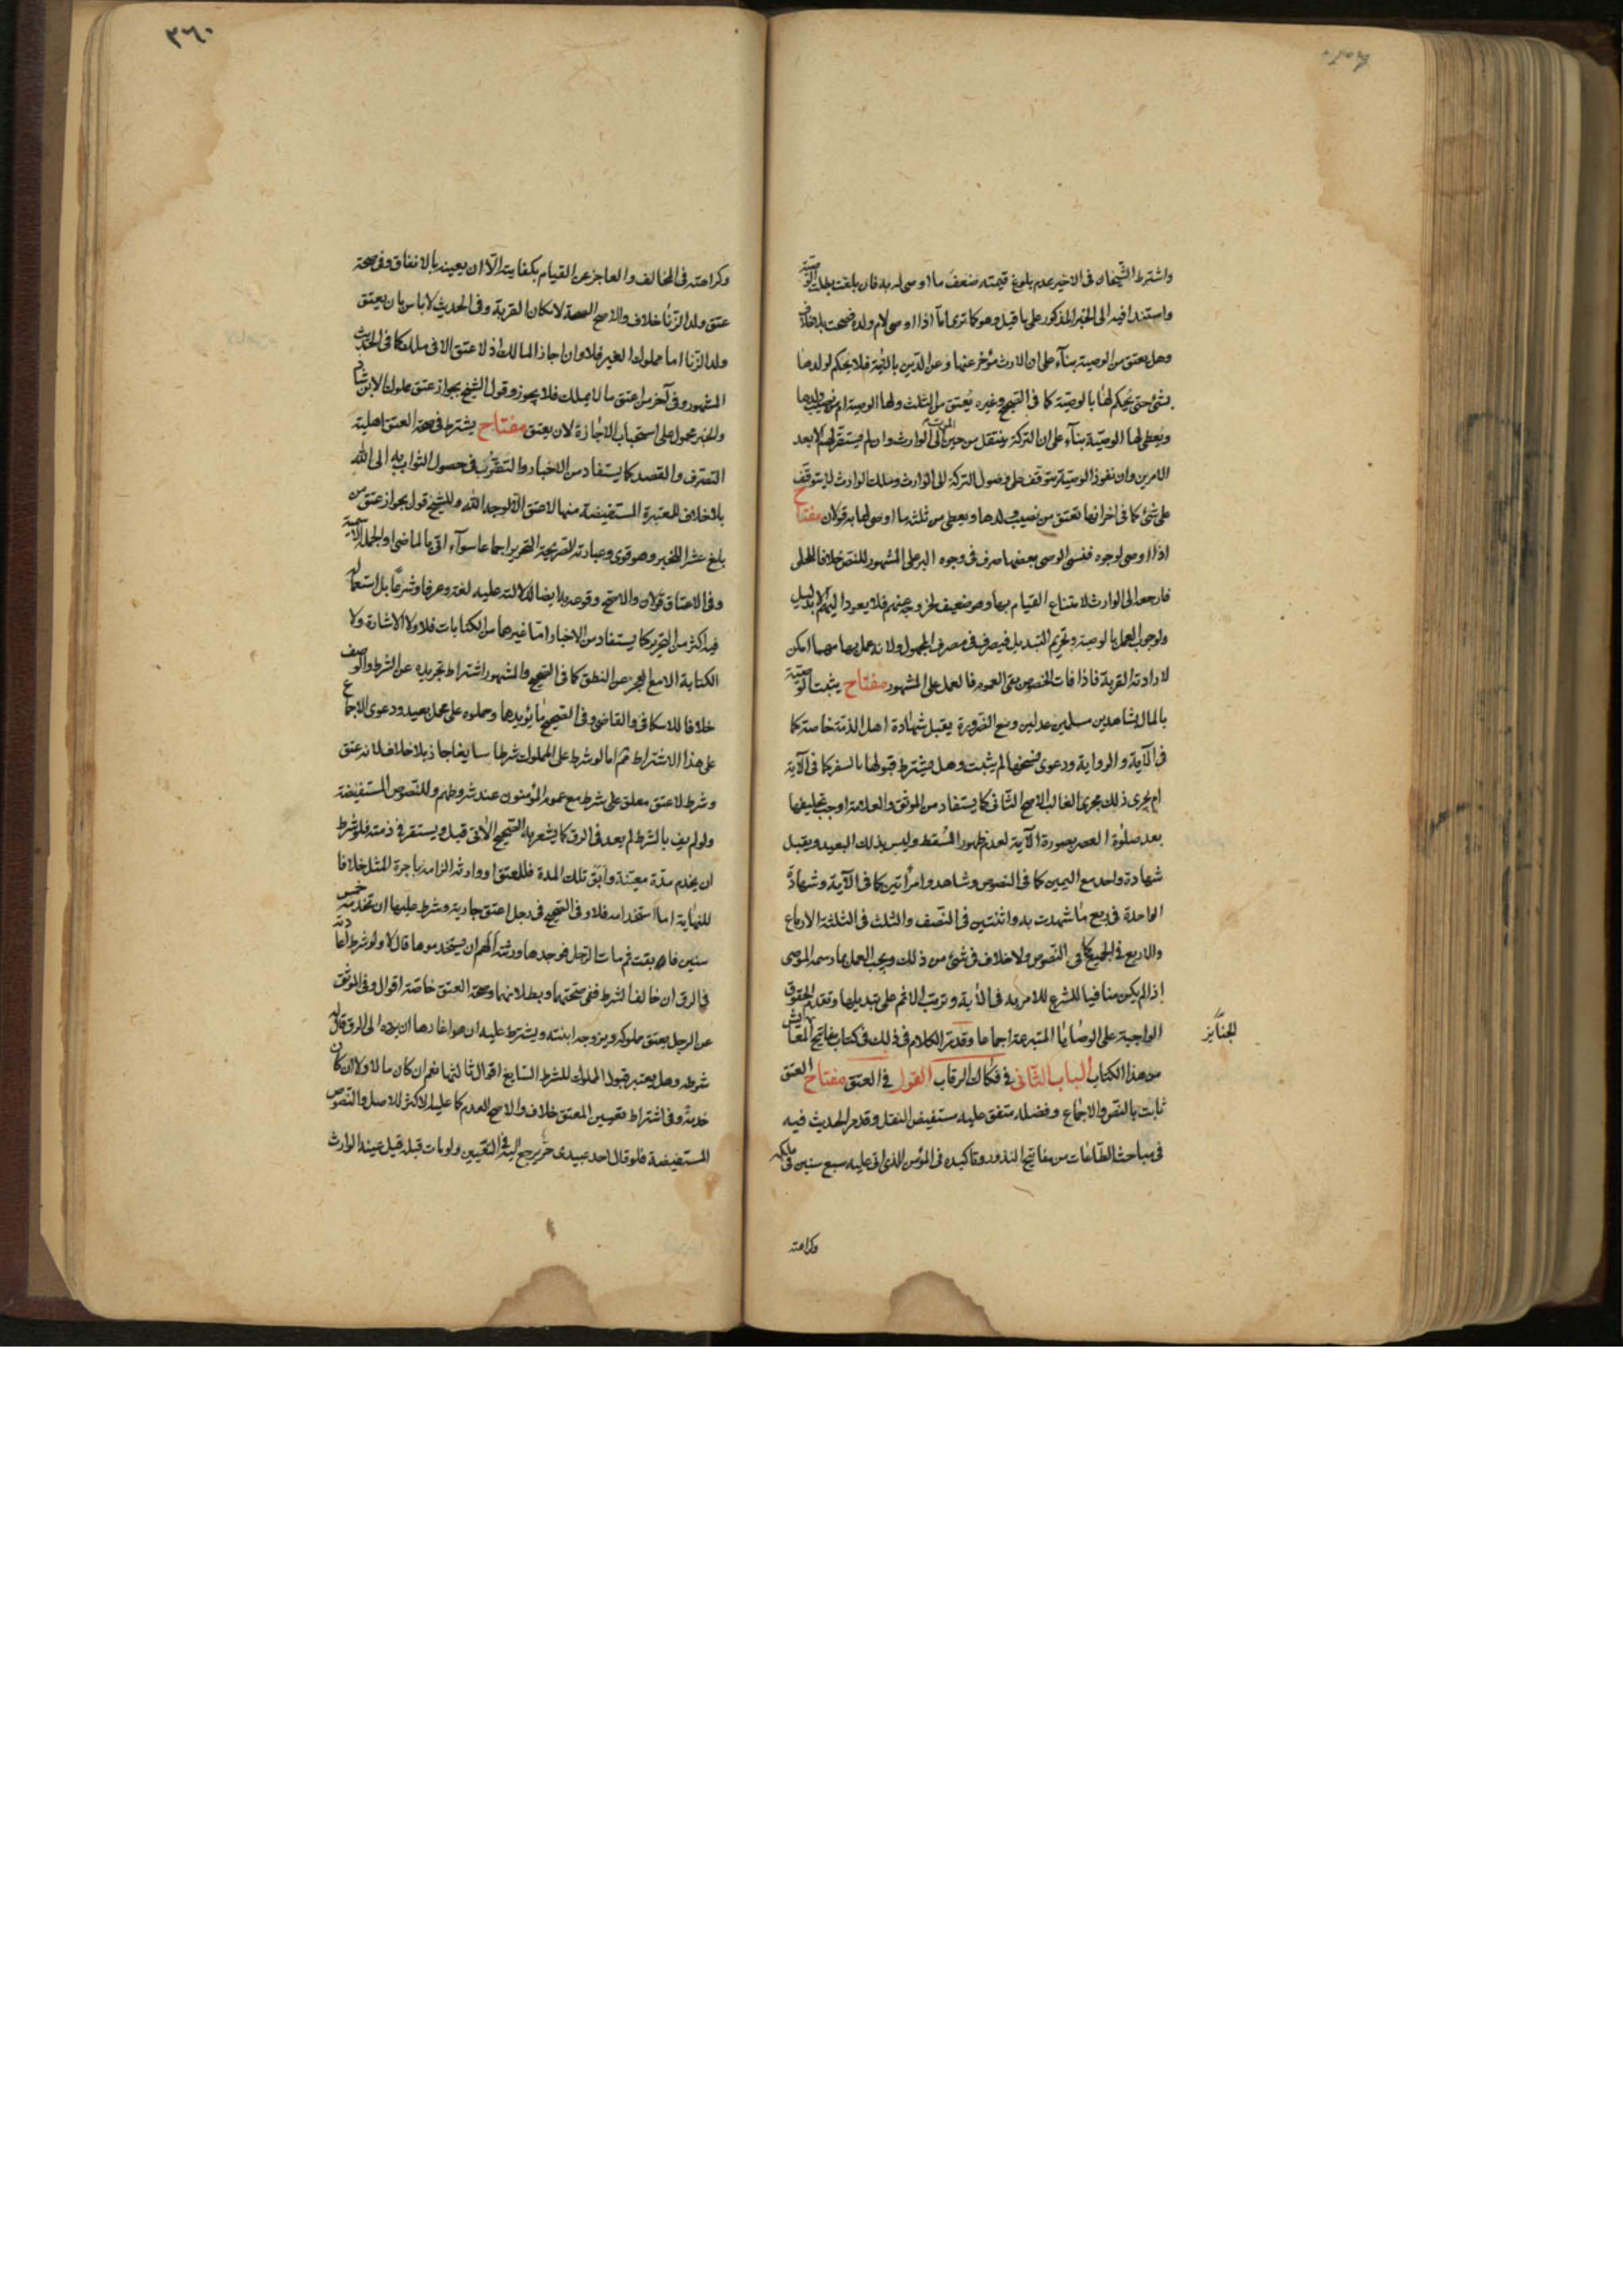 واشترط الشيخان في الاخير عدم بلوغ قيمته ضعف ما اوصى له به فان بلغت بطلت الوصية
واستندا فيه الى الخبر المذكور على ما قيل وهو كما ترى اما اذا اوصى لام ولده فصحت بلا خلاف
وهل يعتق من الوصية بناء على ان الارث مؤخر عنها وعن الدين بالآية فلا يحكم لولدها
بشئ حتى يحكم لها بالوصية كما في الصحيح وغيره يعتق من الثلث ولها الوصية ام من نصيب ولدها
ويعطى لها الوصية بناء على ان التركة ينتقل من حين الموت الى الوارث وان لم يستقر لهم الا بعد
الامرين وان نفوذ الوصية يتوقف على وصول التركة الى الوارث وملك الوارث لا يتوقف
على شئ كما في اخر انها تعتق من نصيب ولدها ويعطى من ثلثه ما اوصى لها به قولان مفتاح
اذا اوصى لوجوه فنسى الوصى بعضها صرف في وجوه البر على المشهور للنص خلافا للحلى
فارجعه الى الوارث لامتناع القيام بها وهو ضعيف لخروجه عنهم فلا يعود اليهم الا بدليل
ولوجوب العمل بالوصية وتحريم التبديل فيصرف في مصرف المجهول ولانه عمل بها مهما امكن
لارادته القربة فاذا فات الخصوص بقى العموم فالعمل على المشهور مفتاح يثبت الوصية
بالمال بشاهدين مسلمين عدلين ومع الضرورة يقبل شهادة اهل الذمة خاصة كما
في الآية والرواية ودعوى نسخها لم يثبت وهل يشترط قبولها بالسفر كما في الآية
ام يجرى ذلك مجرى الغالب الاصح الثاني كما يستفاد من الموثق والعلامة اوجب تحليفها
بعد صلوة العصر بصورة الآية لعدم ظهور المسقط وليس بذلك البعيد ويقبل
شهادة واحد مع اليمين كما في النصوص وشاهد وامرأتين كما في الآية وشهادة
الواحدة في ربع ما شهدت به واثنتين في النصف والثلث في الثلثة الارباع
والاربع في الجميع كما في النصوص ولا خلاف في شئ من ذلك ويجب العمل بما رسمه الموصى
اذا لم يكن منافيا للشرع للامر به في الآية وترتب الاثم على تبديلها وتقدم الحقوق
الواجبة على الوصايا المتبرعة اجماعا وقد مر الكلام في ذلك في كتاب مفاتيح المعايش
الجنائز
من هذا الكتاب الباب الثاني في فكاك الرقاب القول في العتق مفتاح العتق
ثابت بالنص والاجماع وفضله متفق عليه مستفيض النقل وقد مر الحديث فيه
في مباحث الطاعات من مفاتيح النذور وتاكيده في المؤمن الذى اتى عليه سبع سنين في ملكه
وكراهته
٣٦٠
وكراهته في المخالف والعاجز عن القيام بكفايته الا ان يعينه بالانفاق وفي صحة
عتق ولد الزنا خلاف والاصح الصحة لامكان القربة وفي الحديث لا باس بان يعتق
ولد الزنا اما مملوك الغير فلا وان اجاز المالك اذ لا عتق الا في ملك كما في الحديث
المشهور وفي آخر من اعتق ما لا يملك فلا يجوز وقول الشيخ بجواز عتق مملوك الابن شاذ
والخبر محمول على استحباب الاجازة لان يعتق مفتاح يشترط في صحة العتق اهلية
التصرف والقصد كما يستفاد من الاخبار والتقرب في حصول الثواب به الى الله
بلا خلاف للمعتبرة المستفيضة منها لا عتق الا لوجه الله وللشيخ قول بجواز عتق من
بلغ عشرا للخبر وهو قوى وعبارته الصريحة التحرير اجماعا سواء اتى بالماضى او الجملة الاسمية
وفي الاعتاق قولان والاصح وقوعه به ايضا لدلالته عليه لغة وعرفا وشرعا بل استعماله
فيه اكثر من التحرير كما يستفاد من الاخبار اما غيرهما من الكنايات فلا ولا الاشارة ولا
الكتابة الا مع العجز عن النطق كما في الصحيح والمشهور اشتراط تجريده عن الشرط والوصف
خلافا للاسكافى والقاضى وفي الصحيح ما يؤيدها وحملوه على محمل بعيد ودعوى الاجماع
على هذا الاشتراط ثم اما لو شرط على المملوك شرطا سايغا جاز بلا خلاف لانه عتق
وشرط لا عتق معلق على شرط مع عموم المؤمنون عند شروطهم وللنصوص المستفيضة
ولو لم يف بالشرط لم يعد في الرق كما يشعر به الصحيح الآتى قيل ويستقر في ذمته فلو شرط
ان يخدم مدة معينة وابق تلك المدة فللمعتق او وارثه الزامه باجرة المثل خلافا
للنهاية اما استخدامه فلا وفي الصحيح في رجل اعتق جارية وشرط عليها ان تخدمه خمس
سنين فابقت ثم مات الرجل فوجدها ورثته الهم ان يستخدموها قال لا ولو شرط اعادته
في الرق ان خالف الشرط ففي صحتهما وبطلانهما وصحة العتق خاصة اقوال وفي الموثق
عن الرجل يعتق مملوكه ويزوجه ابنته ويشترط عليه ان هو اغارها ان يرده الى الرق قال له
شرطه وهل يعتبر قبول المملوك للشرط السايغ اقوال ثالثها نعم ان كان مالا ولا ان كان
خدمة وفي اشتراط تعيين المعتق خلاف والاصح العدم كما عليه الاكثر للاصل والنصوص
المستفيضة فلو قال احد عبيدى حر يرجع اليه في التعيين ولو مات قبله قيل عينه الوارث